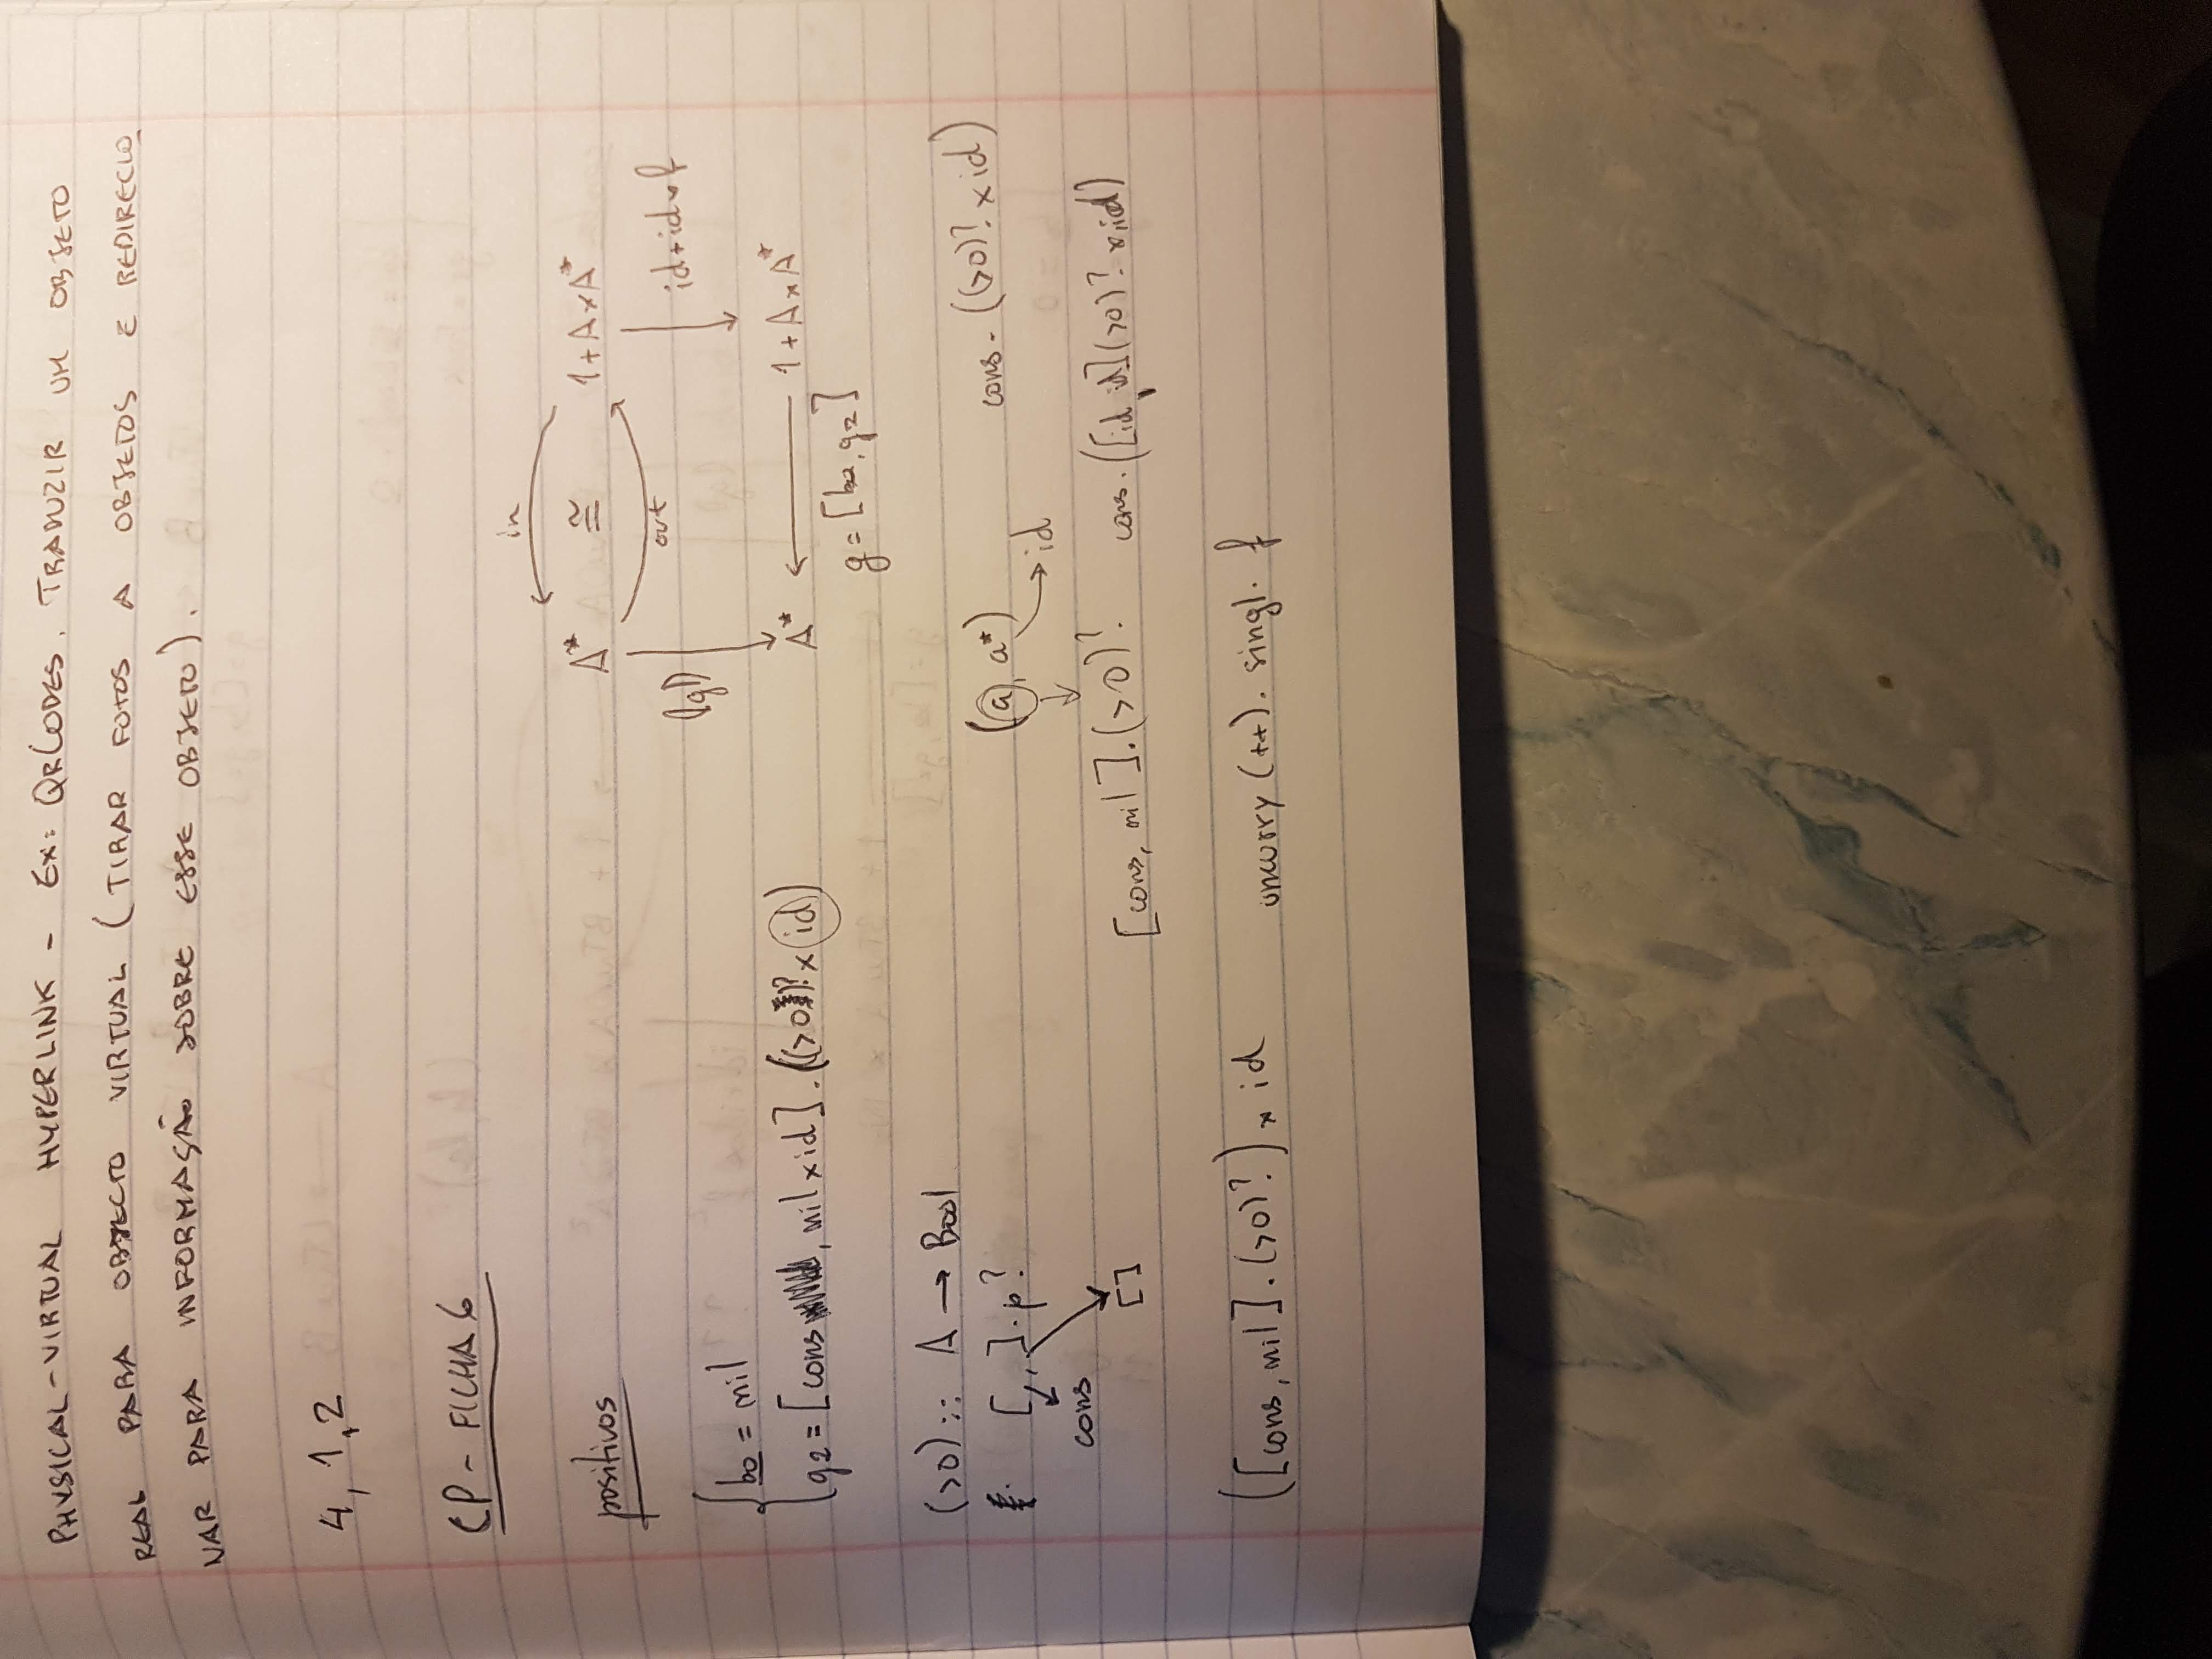 PHYSICAL-VIRTUAL HYPERLINK - EX: QRCODES. TRADUZIR UM OBJETO
REAL PARA OBJECTO VIRTUAL (TIRAR FOTOS A OBJETOS E REDIRECIO
NAR PARA INFORMAÇÃO SOBRE ESSE OBJETO).
4, 1, 2
CP - FICHA 6
in
A* ≅ 1+A×A*
out
positivos
(|g|) id+id×f
b0 = nil
g2 = [cons, nil×id] . ((>0)? × id)
A* ← 1+A×A*
g = [b0, g2]
(>0) :: A → Bool
[ , ] . p?
cons
[]
(a, a*) cons . ((>0)? × id)
id
[cons, nil] . (>0)? cons . ([id, id] (>0)? × id)
([cons, nil] . (>0)?) × id uncurry (++) . singl . f